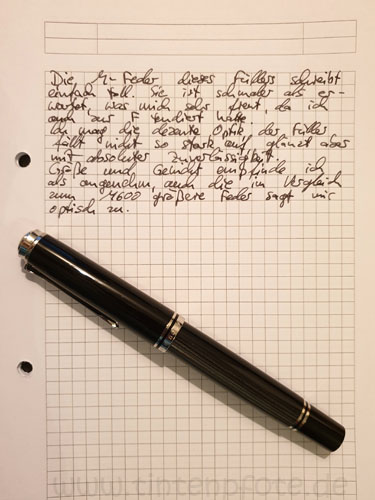 Die M-Feder dieses Füllers schreibt
einfach toll. Sie ist schmaler als er-
wartet, was mich sehr freut, da ich
auch zur F tendiert hatte.
Ich mag die dezente Optik, der Füller
fällt nicht so stark auf, glänzt aber
mit absoluter Zuverlässigkeit.
Größe und Gewicht empfinde ich
als angenehm, auch die im Vergleich
zum M600 größere Feder sagt mir
optisch zu.
www.tintenpfote.de